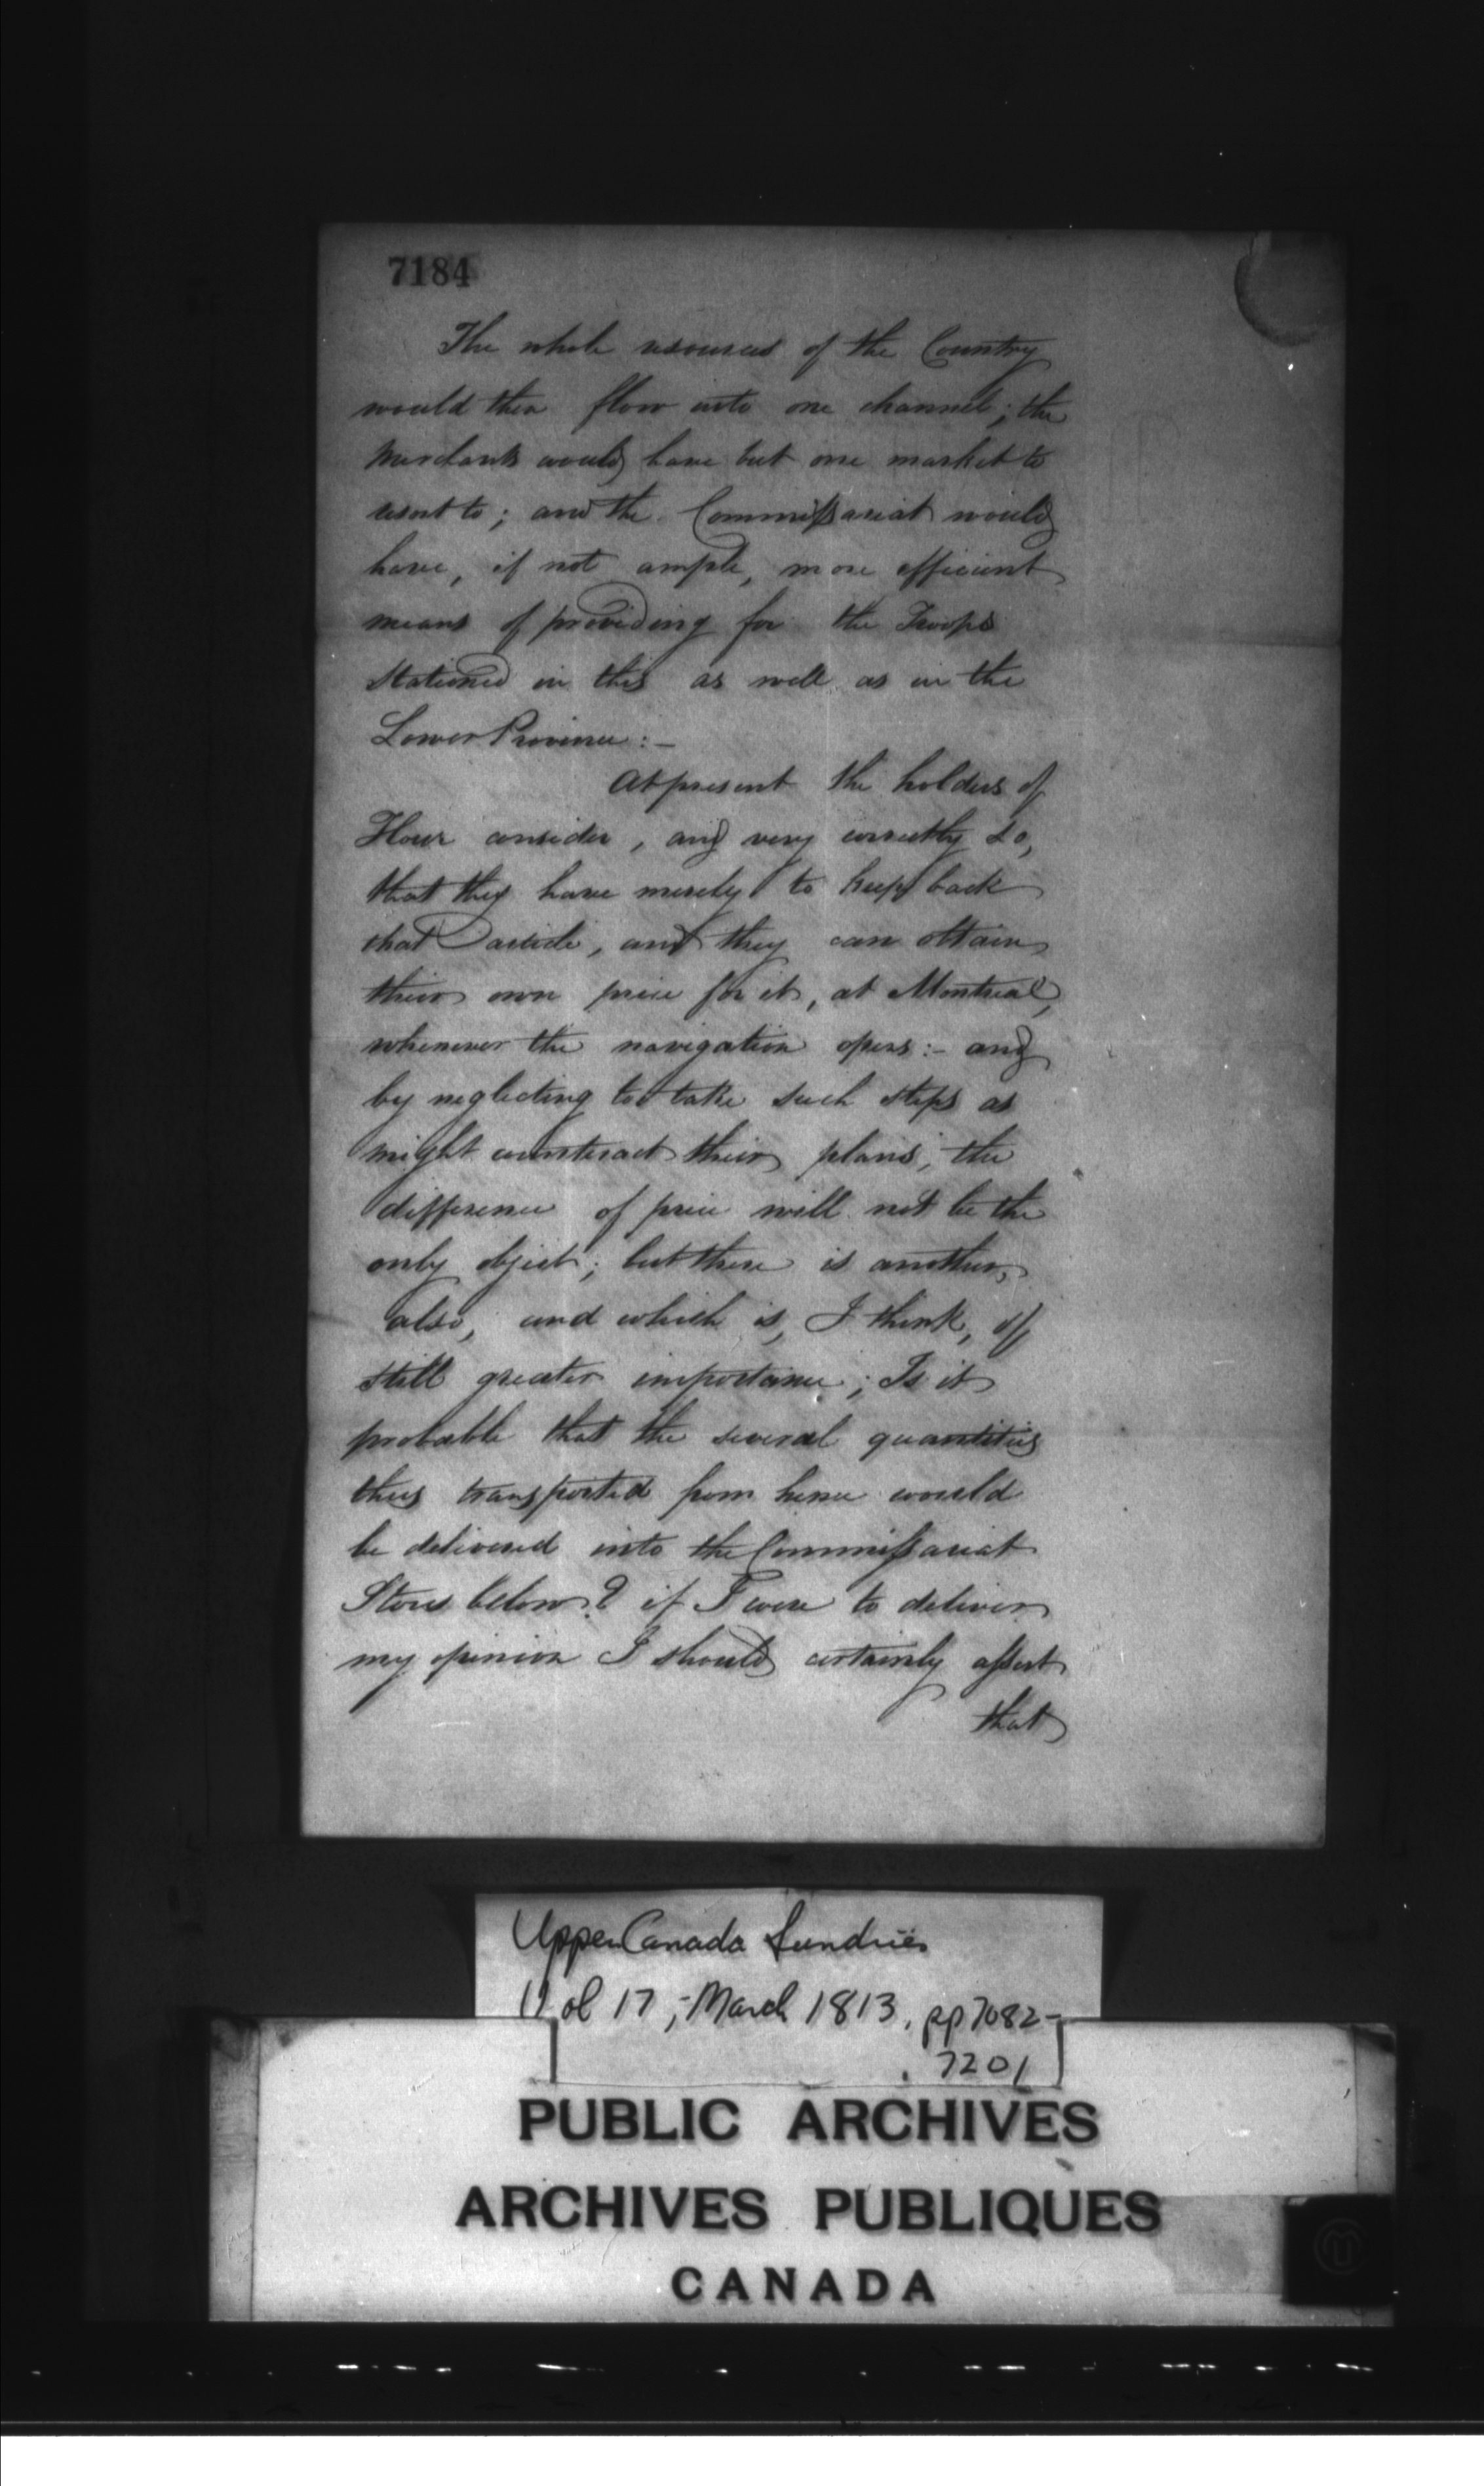 7184
The whole resources of the Country
would then flow into one channel; the
Merchants would have but one market to
resort to; and the Commissariat would
have, if not ample, more efficient
means of providing for the Troops
stationed in this as well as in the
Lower Province:-
At present the holders of
Flour consider, and very correctly so,
that they have merely to keep back
that article, and they can obtain
their own price for it, at Montreal,
whenever the navigation opens:- and
by neglecting to take such steps as
might counteract their plans, the
difference of price will not be the
only object; but there is another,
also, and which is, I think, of
still greater importance; Is it
probable that the several quantities
thus transported from hence would
be delivered into the Commissariat
Stores below? if I were to deliver
my opinion I should certainly assert
that
Upper Canada Sundries
Vol 17, -March 1813, pp 7082-
7201
PUBLIC ARCHIVES
ARCHIVES PUBLIQUES
CANADA